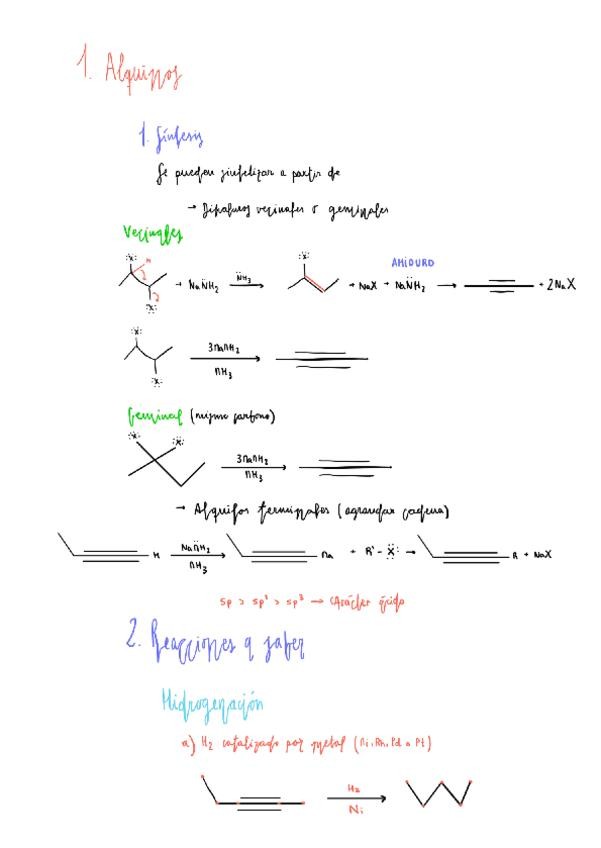 1. Alquinos
1. Síntesis
Se pueden sintetizar a partir de
→ Dihaluros vecinales o geminales
Vecinales
X H X + NaNH2 NH3 → X + NaX + NaNH2 AMIDURO → + 2NaX
X X 3NaNH2 NH3
Geminal (mismo carbono)
X X 3NaNH2 NH3
→ Alquinos terminales (agrandar cadena)
H NaNH2 NH3 Na + R'-X: → R + NaX
sp > sp² > sp³ → Carácter ácido
2. Reacciones q saber
Hidrogenación
a) H2 catalizado por metal (Ni, Rh, Pd o Pt)
H2
Ni